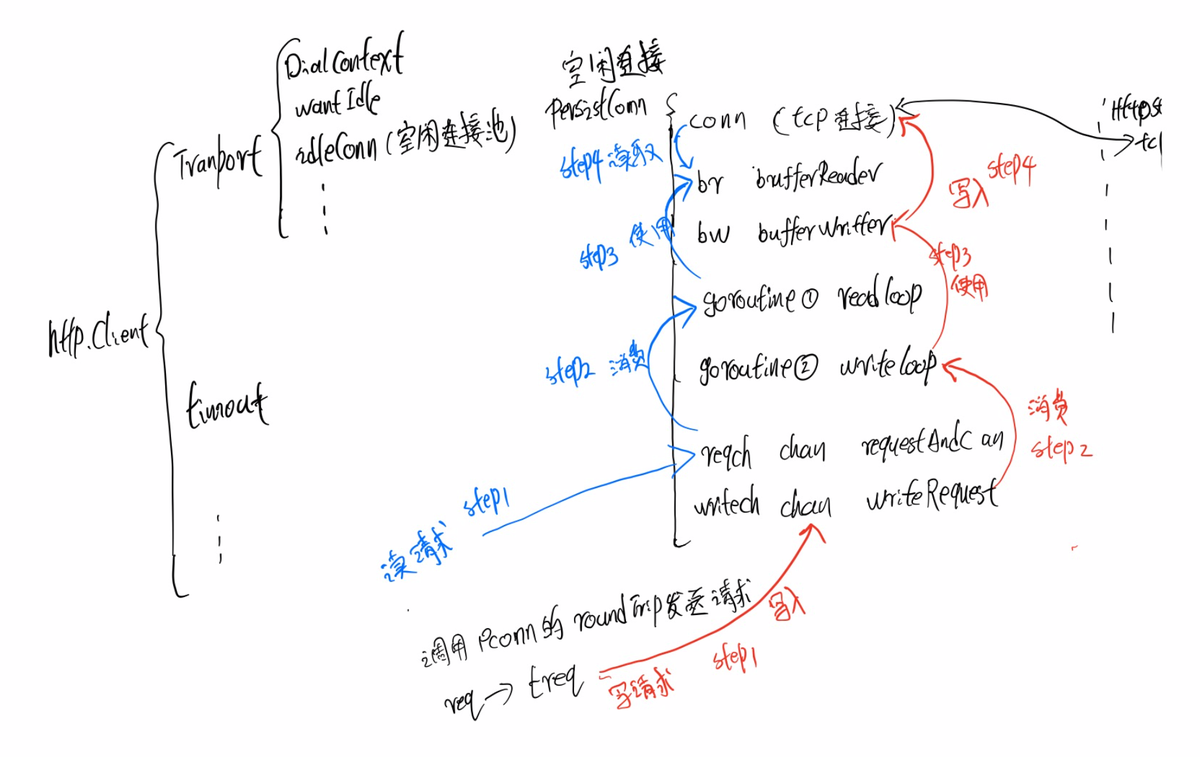 http.Client
Tranport
DialContext
wantIdle
idleConn (空闲连接池)
timout
空闲连接
PersistConn
conn (tcp 连接)
br bufferReader
bw bufferWritter
goroutine① readloop
goroutine② writeloop
reqch chan requestAndC an
writech chan writeRequest
step4 读取
step3 使用
step2 消费
读请求 step1
写入 step4
step3
使用
消费
step2
调用 Pconn的 roundTrip发送请求
写入
req → treq 写请求 step1